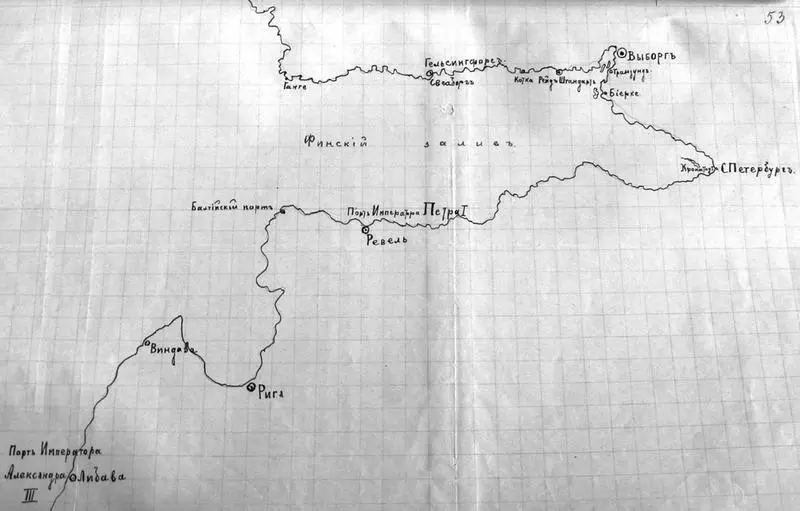 53
Выборгъ
Гельсингфорсъ
Свеаборгъ
Ганге
Котка
Рейдъ Штандартъ
Транзундъ
Біерке
Финскій заливъ
Кронштадтъ
С.Петербургъ.
Балтійскій портъ
Портъ Императора Петра I
Ревель
Виндава
Рига
Портъ Императора
Александра
III
Либава